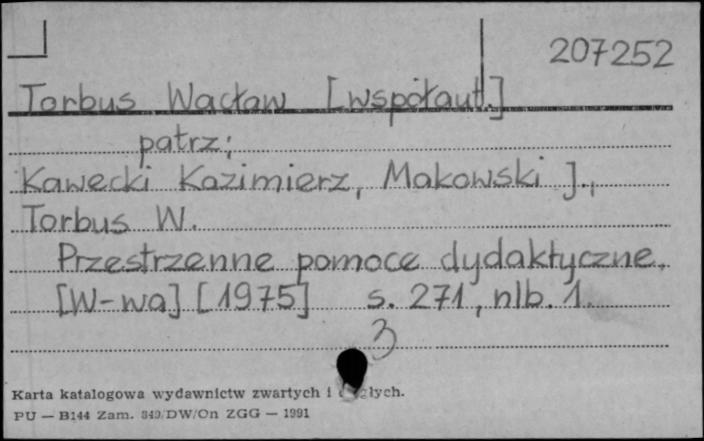 207252
Torbus Wacław [współaut.]
patrz:
Kawecki Kazimierz, Makowski J.,
Torbus W.
Przestrzenne pomoce dydaktyczne.
[W-wa] [1975] s. 271, nlb. 1.
3
Karta katalogowa wydawnictw zwartych i
PU — B144 Zam. 349/DW/On ZGG — 1991